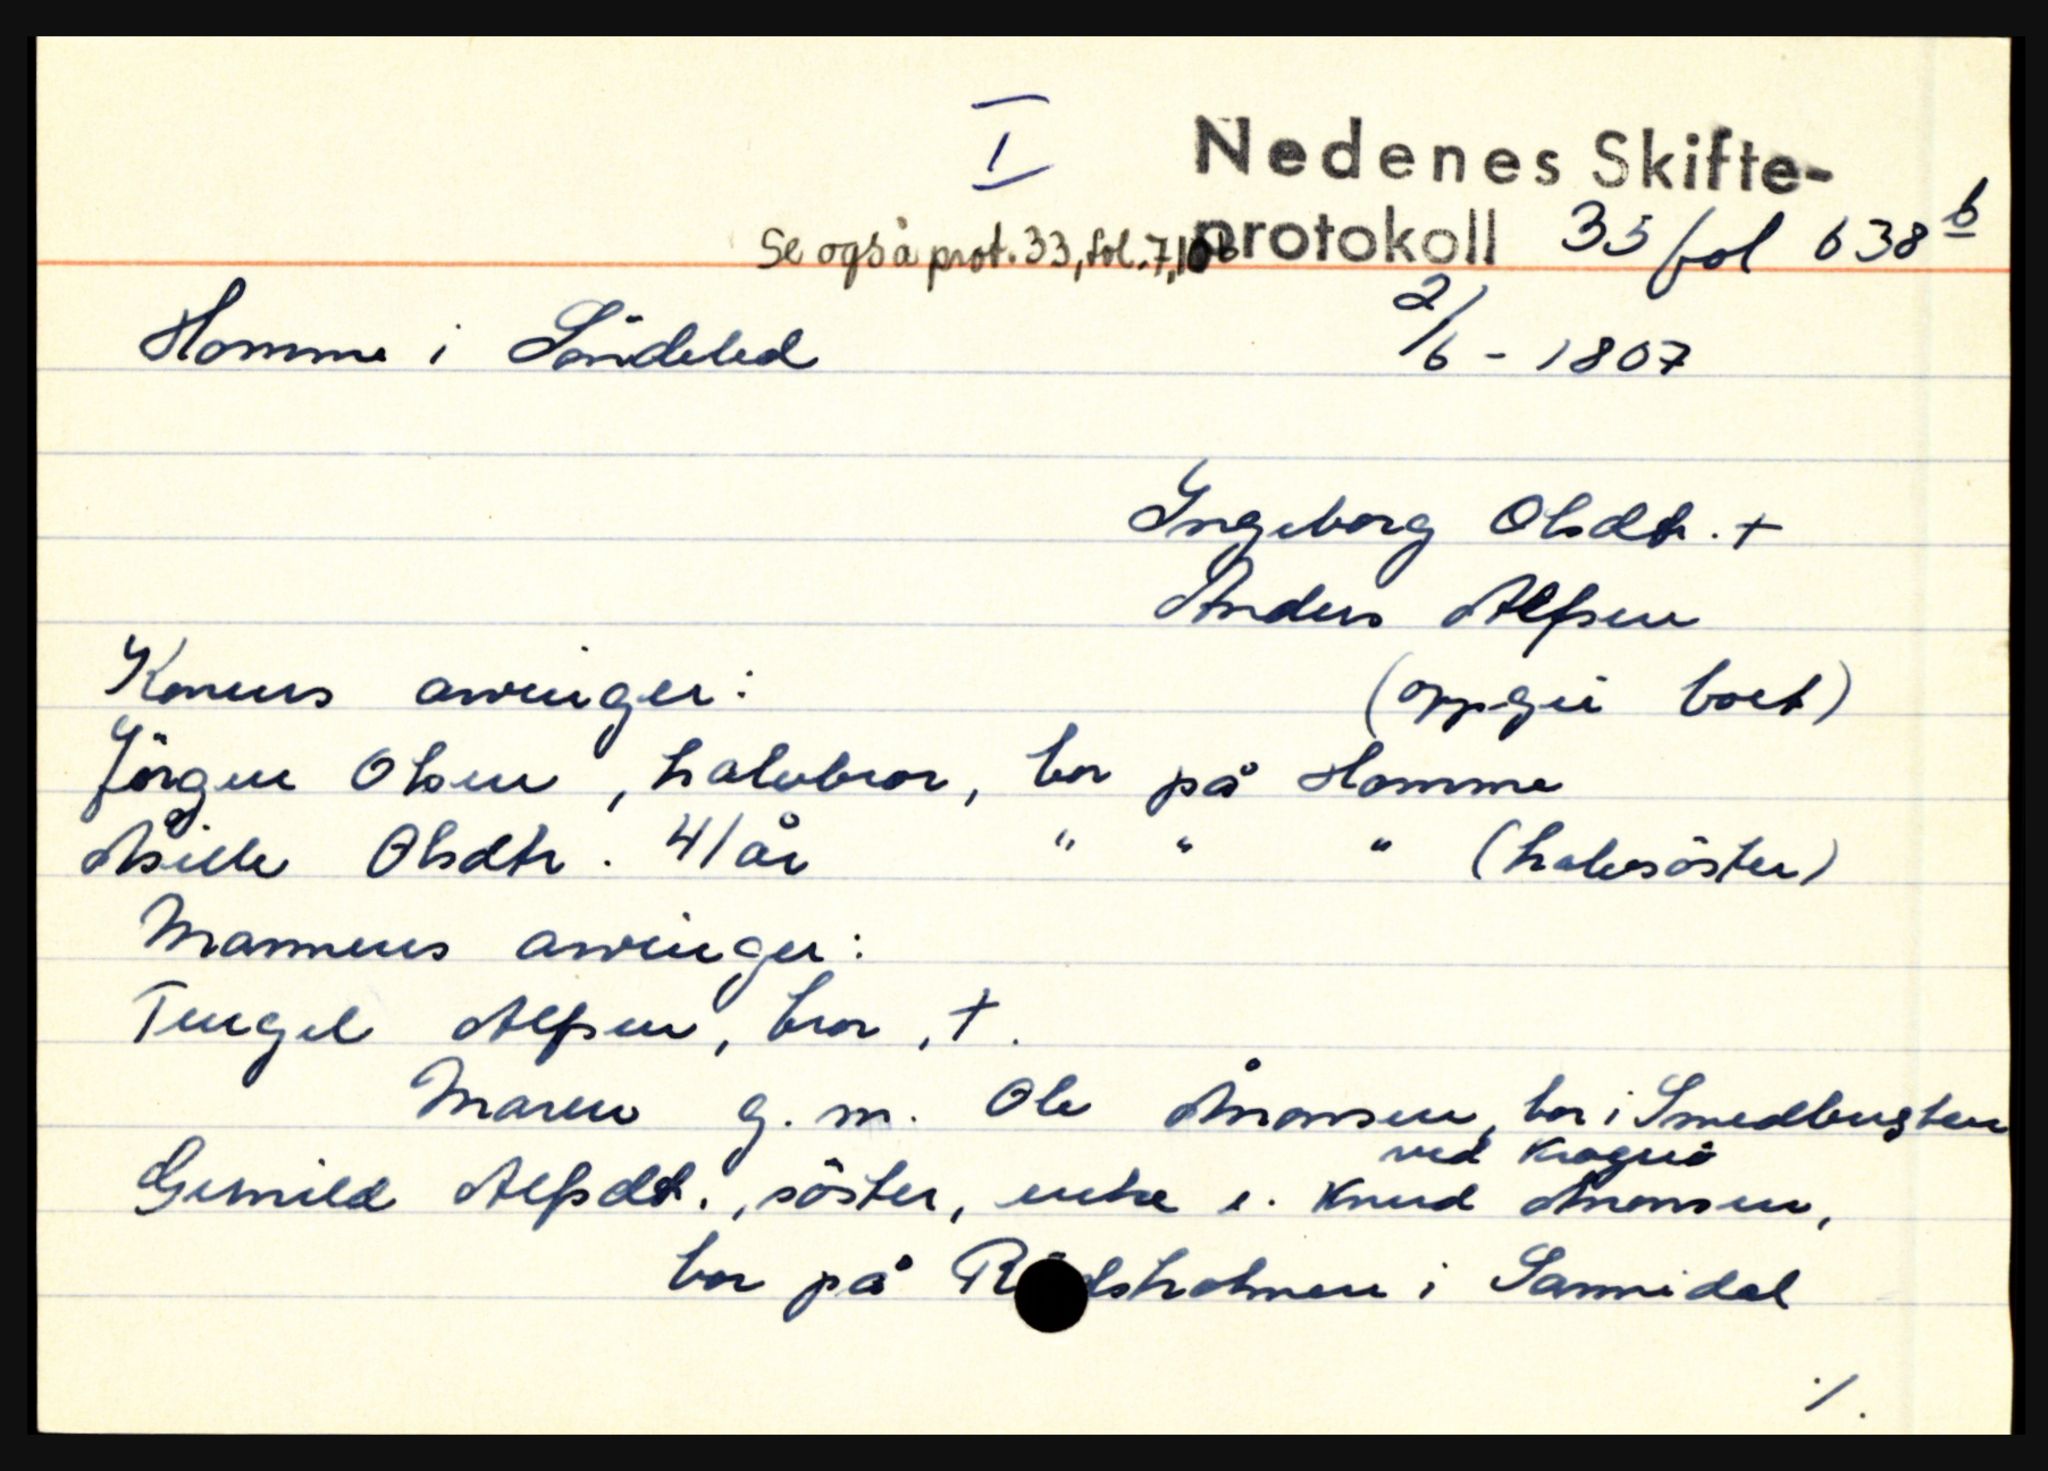 I
Nedenes Skifte-
protokoll 35 fol 638 b
Se også prot. 33, fol. 7, 10b
Homme i Söndeled 2/6 - 1807
Ingeborg Olsdtr. +
Anders Alfsen
Konens arvinger: (oppgir boet)
Jörgen Olsen, halvbror, bor på Homme
Olsdtr. 41 år " " " (halvsöster)
Mannens arvinger:
Tengel Alfsen, bror, +.
Maren g. m. Ole Åmonsen, bor i Smedbugten
ved Kragerö
Gunild Alfsdt., söster, enke e. Knud Amonsen,
bor på i Sannidal
./.